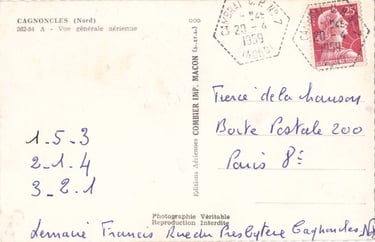 CAGNONCLES (Nord)
262-54 A - Vue générale aérienne
Editions Aériennes COMBIER IMP. MACON (S.-et-L.)
CAMBRAI C.P. No 7
20 - 4
1959
(NORD)
25
Tierce de la chanson
Boîte Postale 200
Paris 8e
1-5-3
2-1-4
3-2-1
Photographie Véritable
Reproduction Interdite
Lemaire Francis Rue du Presbytère Cagnoncles, Nd